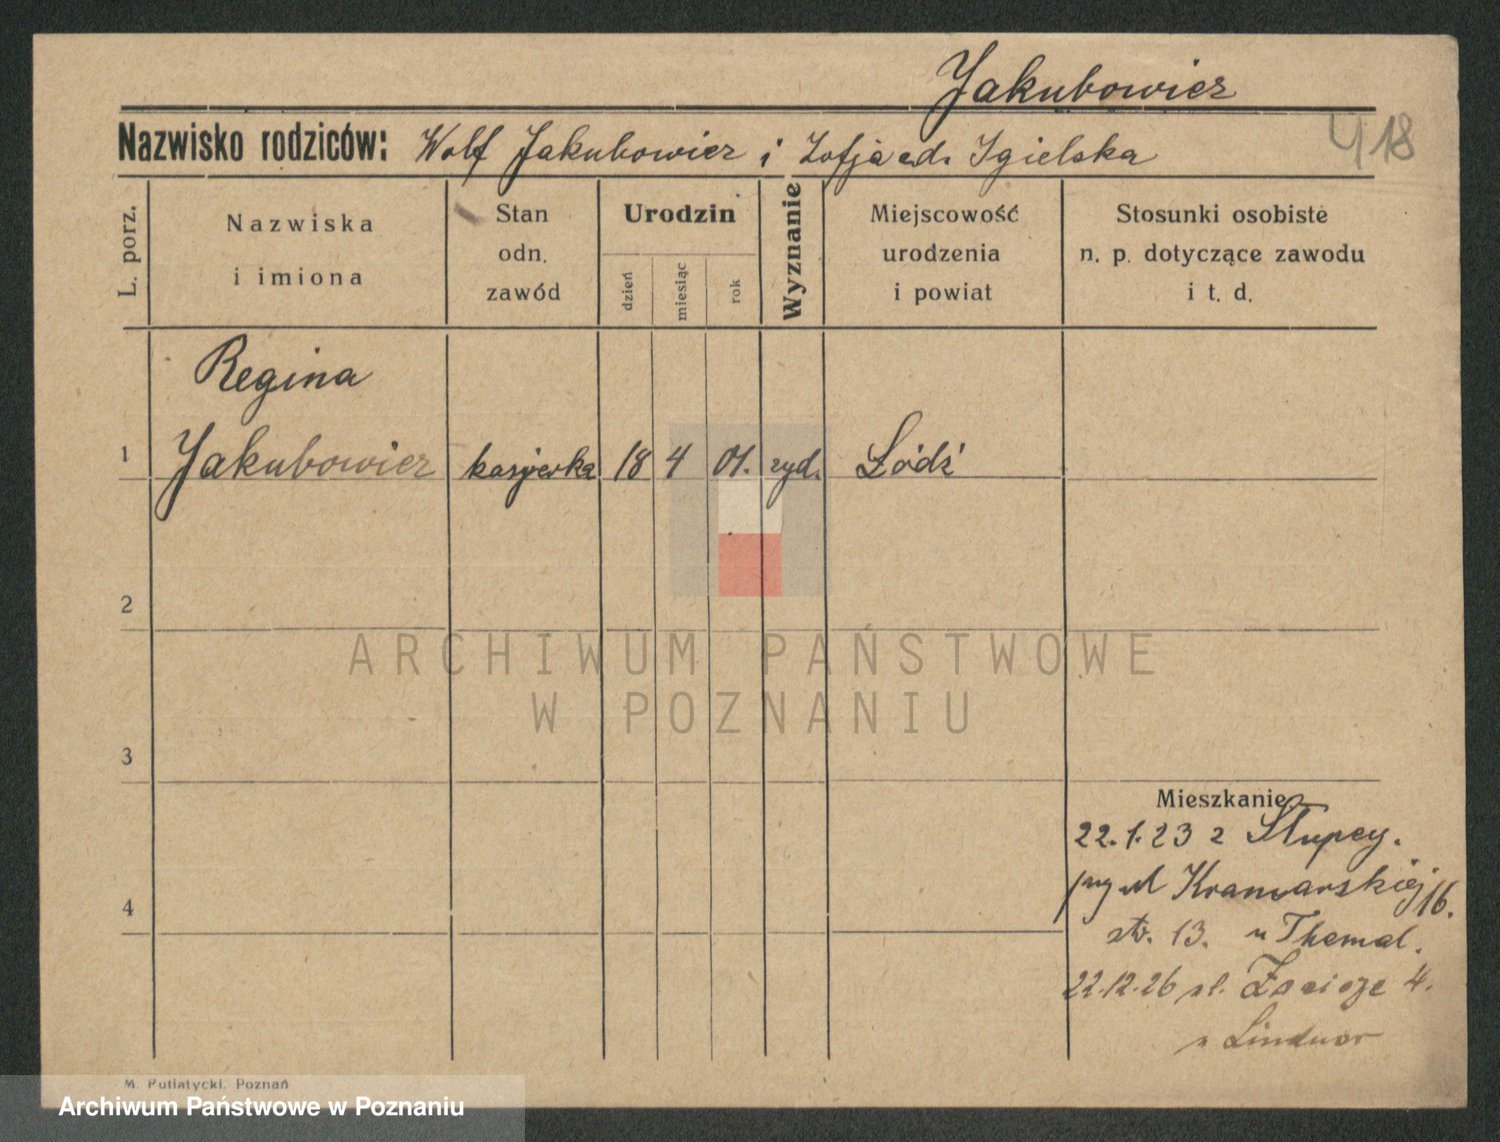 Jakubowicz
418
Nazwisko rodziców: Wolf Jakubowicz i Zofja Igielska
L. porz.
Nazwiska
i imiona
Stan
odn.
zawód
Urodzin
dzień
miesiąc
rok
Wyznanie
Miejscowość
urodzenia
i powiat
Stosunki osobiste
n. p. dotyczące zawodu
i t. d.
Regina
1 Jakubowicz kasjerka 18 4 01. żyd. Łódź
2
ARCHIWUM PAŃSTWOWE
W POZNANIU
3
Mieszkanie
22.1.23 z Słupcy.
4
przy ul Kramarskiej 16.
str. 13. u Themal.
22.12.26 pl. Zacisze 4.
u
M. Putiatycki, Poznań
Archiwum Państwowe w Poznaniu